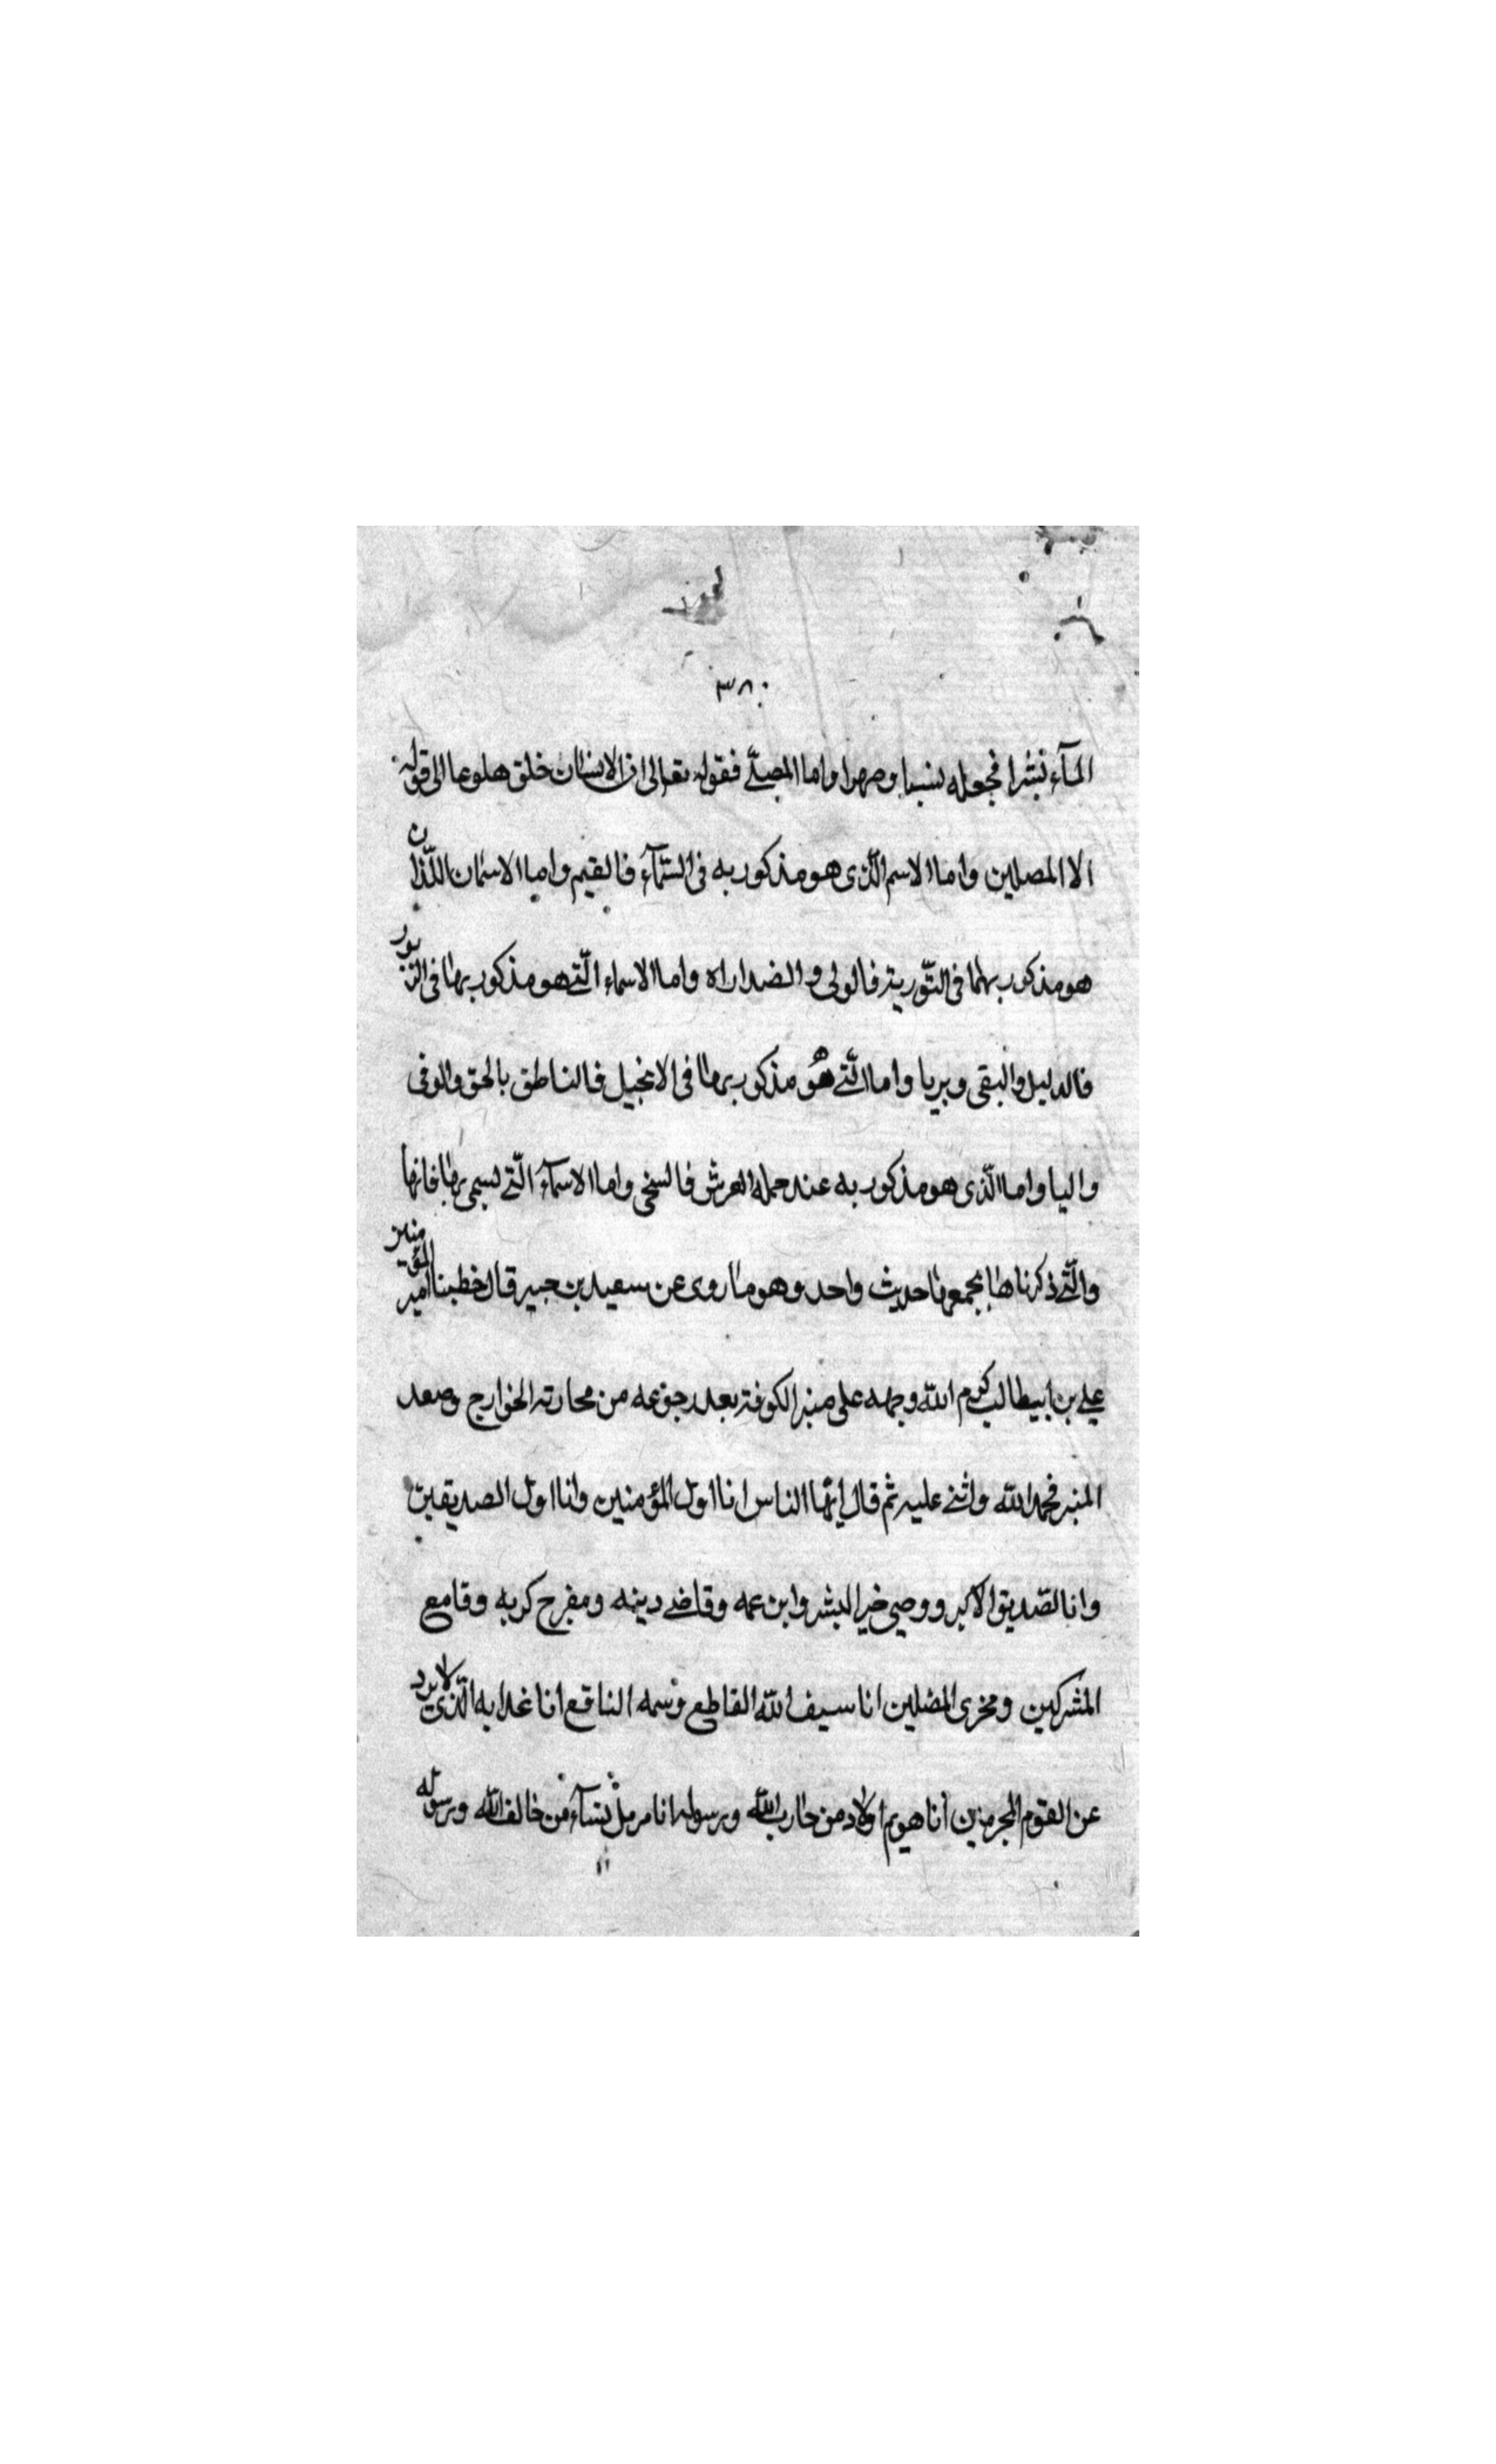 ٣٨٠
المآء بشرا فجعله نسبا وصهرا واما المصلّے فقوله تعالى ان الانسان خلق هلوعا الى قوله
الا المصلين واما الاسم الّذى هو مذكور به فى السّمآء فالقيم واما الاسمان اللّذان
هو مذكور بهما فى التّورية فالولى و واما الاسماء الّتے هو مذكور بها فى الزبور
فالدليل والبقى وبريا واما الّتے هو مذكور بها فى الانجيل فالناطق بالحق والوفى
واليا واما الّذى هو مذكور به عند حمله العرش فالسخى واما الاسمآء الّتے يسمى بها فانها
والّتے ذكرناها يجمعها حديث واحد وهو ما روى عن سعيد بن جبير قال خطبنا امير المؤمنين
علے بن ابيطالب كرم اللّه وجهه على منبر الكوفة بعد رجوعه من محاربة الخوارج وصعد
المنبر فحمد اللّه واثنے عليه ثم قال ايّها الناس انا اوّل المؤمنين وانا اوّل الصديقين
وانا الصّديق الاكبر ووصى خير البشر وابن عمه وقاضے دينه ومفرج كربه وقامع
المشركين ومخزى المضلين انا سيف اللّه القاطع وسمه الناقع انا عذابه الّذى لا يرد
عن القوم المجرمين انا اولاد من حارب اللّه ورسوله انا مرمل نسآء من خالف اللّه ورسوله